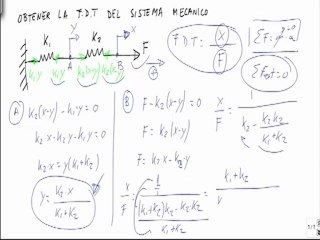 OBTENER LA T.D.T DEL SISTEMA MECANICO
K₁ K₂ y x F
A B
K₁y K₁y K₂(x-y) K₂(x-y) +
F.D.T: X/F
ΣF=0
ΣFext=0
A
K₂(x-y)-K₁y=0
K₂·x-K₂y-K₁y=0
K₂·x=y(K₁+K₂)
y=K₂·x/K₁+K₂
B
F-K₂(x-y)=0
F=K₂(x-y)
F=K₂·x-K₂y
x/F=1/K₂-K₂·K₂/K₁+K₂
x/F=1/(K₁+K₂)K₂-K₂·K₂/K₁+K₂=K₁+K₂/K
1/1